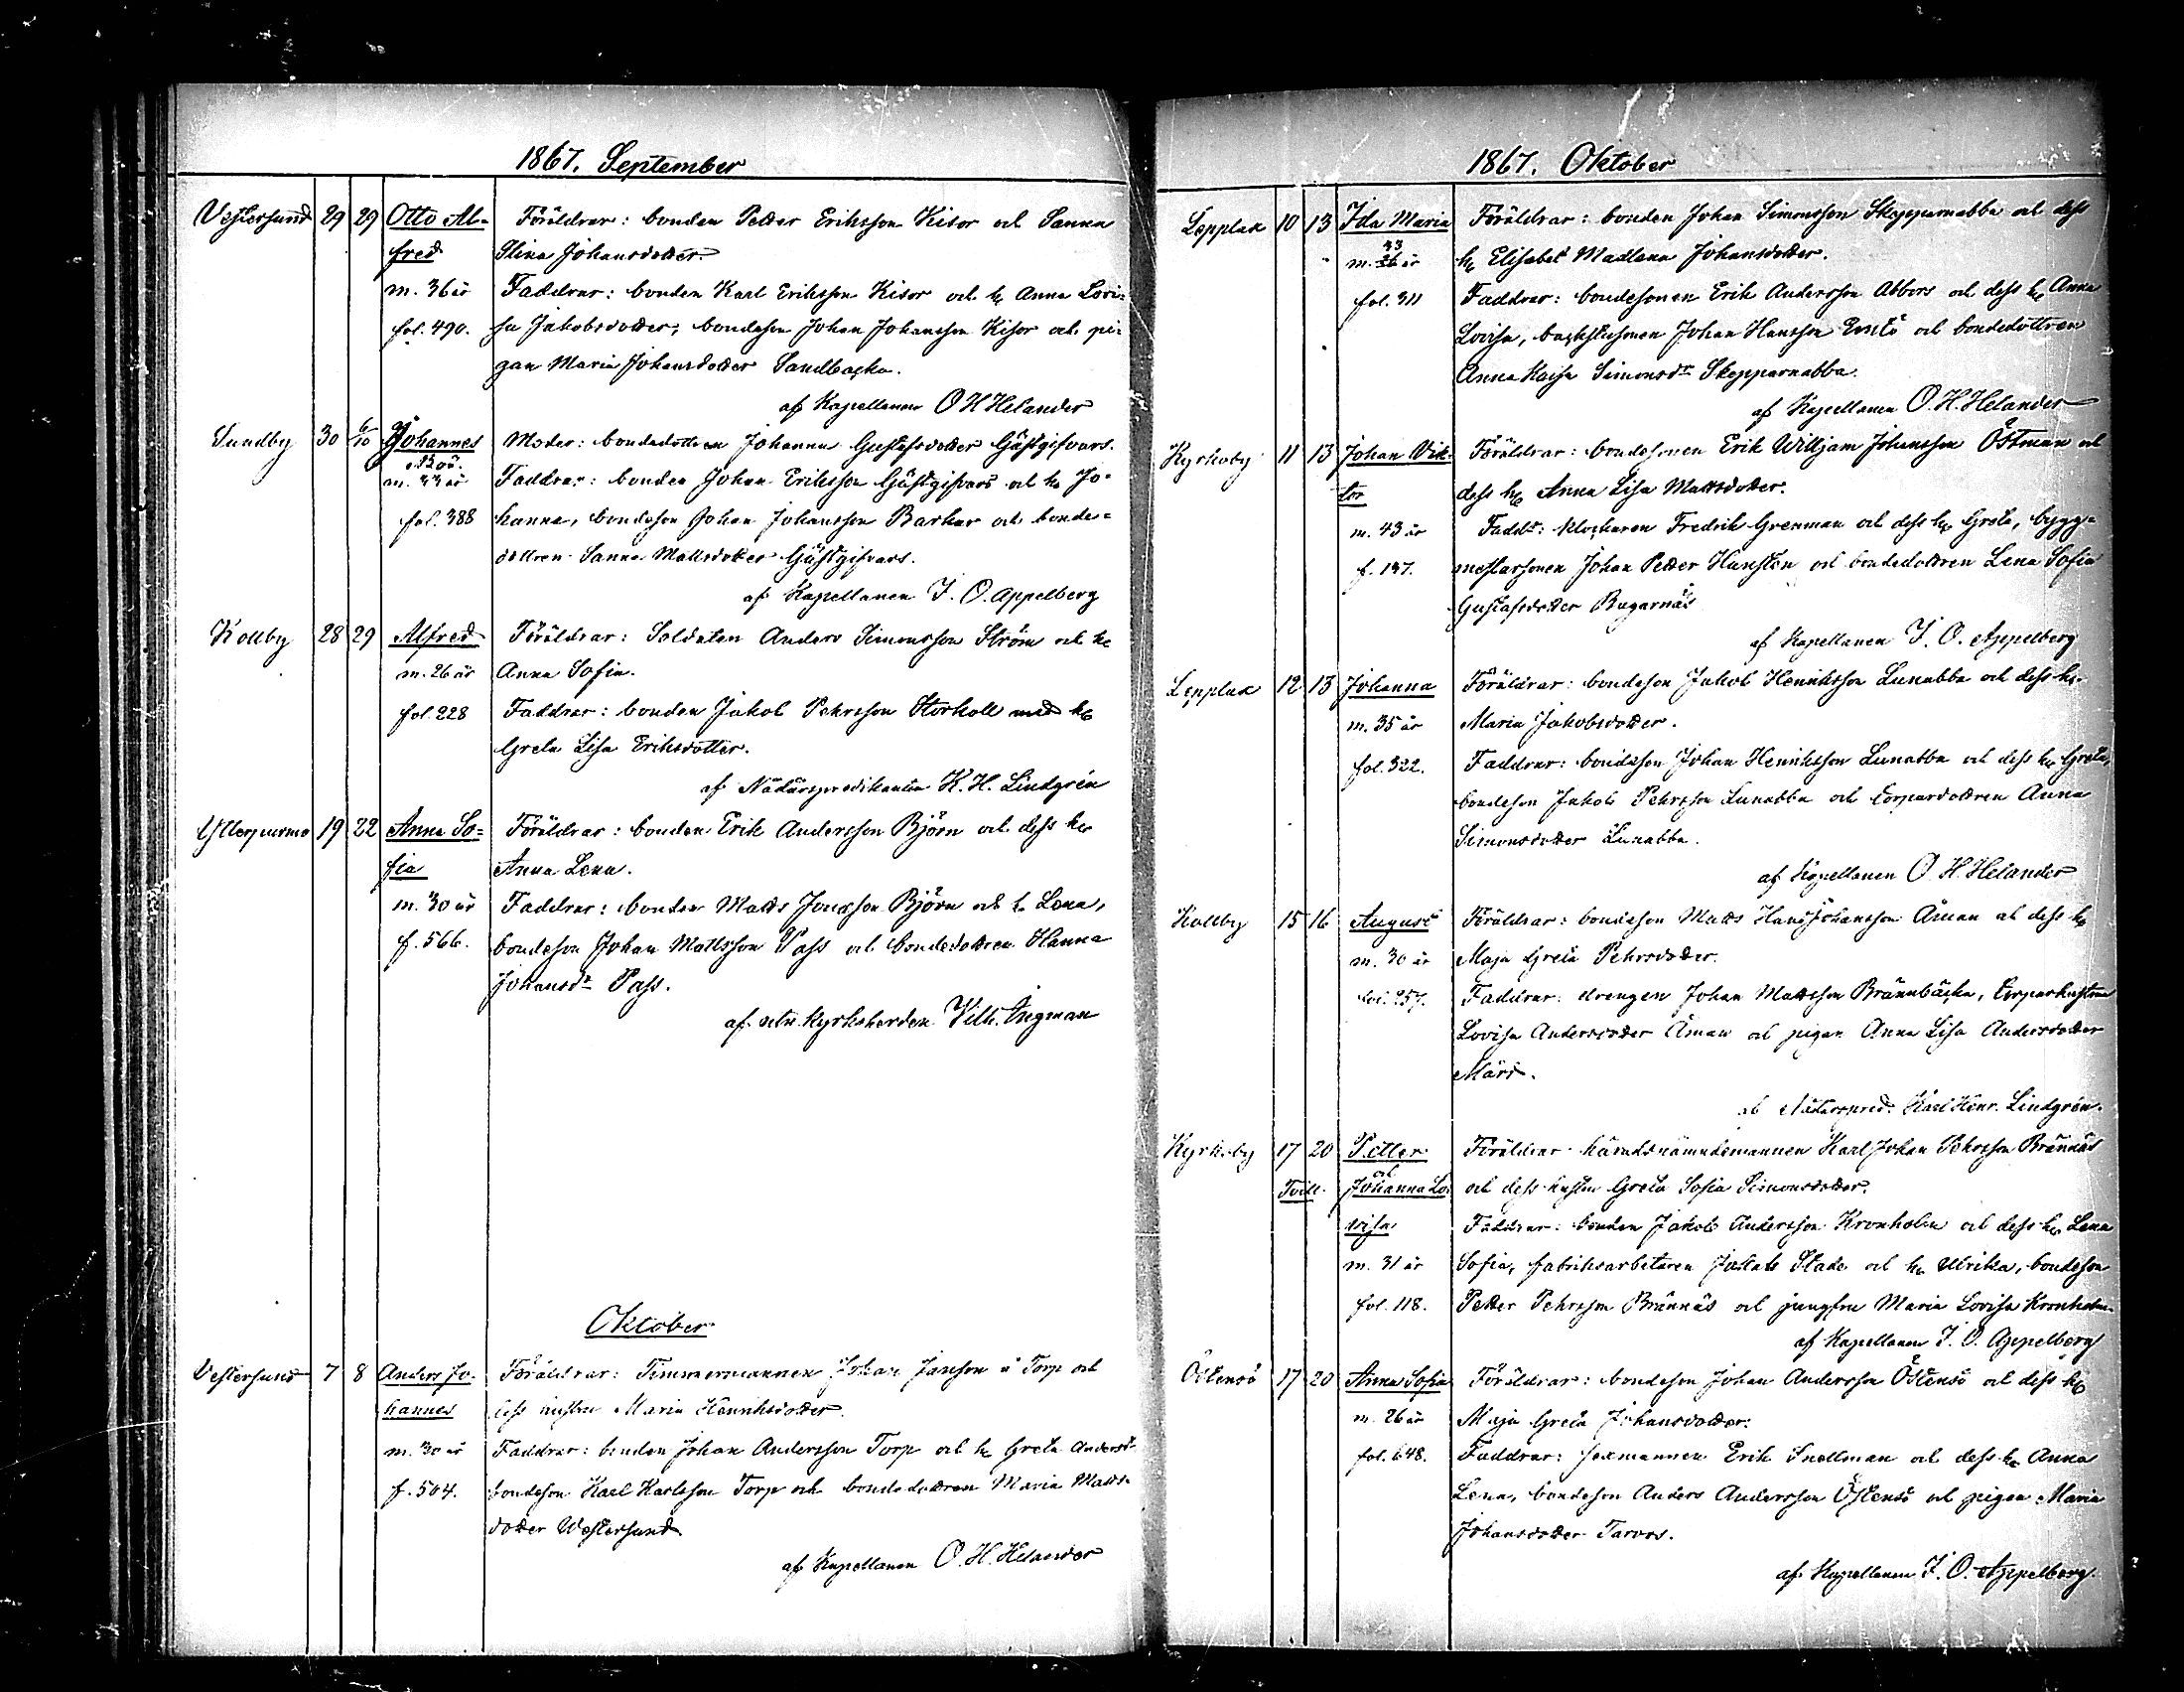 1867. September
Vestersund 29 29 Otto Al- Föräldrar: bonden Petter Eriksson Kisor och Sanna
fred Stina Johansdotter.
m. 36 år Faddrar: bonden Karl Eriksson Kisor och h. Anna Lovi-
fol. 490. sa Jakobsdotter, bondeson Johan Johansson Kisor och pi-
gan Maria Johansdotter Sandbacka.
af Kapellanen O H Helander
Sundby 30 6/10 Johannes Moder: bondedottren Johanna Gustafsdotter Gästgifvars.
m. 33 år Faddrar: bonden Johan Eriksson Gästgifvars och h. Jo-
fol. 388 hanna, bondeson Johan Johansson Barkar och bonde-
dottren Sanna Mattsdotter Gästgifvars.
af Kapellanen J. O. Appelberg
Kållby 28 29 Alfred Föräldrar: Soldaten Anders Simonsson Ström och h.
m. 26 år Anna Sofia.
fol. 228 Faddrar: bonden Jakob Pehrsson Storkåll med h.
Greta Lisa Eriksdotter.
af Nådårspredikanten K. H. Lindgrén
Ytterpurmo 19 22 Anna So- Föräldrar: bonden Erik Andersson Björn och dess h.
fia Anna Lena.
m. 30 år Faddrar: bonden Matts Jonsson Björn och h. Lena,
f. 566. bondeson Johan Mattsson Pass och bondedottren Hanna
Johansdr Pass.
af Kyrkoherden Vilh. Ingman
Oktober
Vestersund 7 8 Anders Jo- Föräldrar: Timmermannen Johan Jansson å Torp och
hannes dess hustru Maria Henriksdotter.
m. 30 år Faddrar: bonden Johan Andersson Torp och h. Greta Andersd.
f. 504. bondeson Karl Karlsson Torp och bondedottren Maria Matts-
dotter Westersund.
af Kapellanen O. H. Helander
1867. Oktober
Lepplax 10 13 Ida Maria Föräldrar: bonden Johan Simonsson Skepparnabba och dess
33
m. 26 år h. Elisabet Madlena Johansdotter.
fol. 311 Faddrar: bondesonen Erik Andersson Abbors och dess h. Anna
Lovisa, Johan Hansson och bondedottren
Anna Kajsa Simonsdr Skepparnabba.
af Kapellanen O. H. Helander
Kyrkoby 11 13 Johan Vik- Föräldrar: bondesonen Erik Willjam Johansson Östman och
tor dess h. Anna Lisa Mattsdotter.
m. 43 år Faddr: klockaren Fredrik Grenman och dess h. Greta, bygg-
f. 137. mestarsonen Johan Petter Hansten och bondedottren Lena Sofia
Gustafsdotter Bagarnäs
af Kapellanen J. O. Appelberg
Lepplax 12 13 Johanna Föräldrar: bondeson Jakob Henriksson Lunabba och dess h.
m. 35 år Maria Jakobsdotter.
fol. 322. Faddrar: bondeson Johan Henriksson Lunabba och dess h. Greta,
bondeson Jakob Pehrsson Lunabba och torpardottren Anna
Simonsdotter Lunabba.
af Kapellanen O. H. Helander
Kållby 15 16 August Föräldrar: bondeson Matts Hans Johansson Åman och dess h.
m. 30 år Maja Greta Pehrsdotter.
fol. 257. Faddrar: drengen Johan Mattsson Brännbacka, torparhustrun
Lovisa Andersdotter Åman och pigan Anna Lisa Andersdotter
Mårs.
af Nådårspred. Karl Henr. Lindgrén.
Kyrkoby 17 20 Petter Föräldrar häradsnämndemannen Karl Johan Pehrsson Brännäs
och
Tvill. Johanna Lo- och dess hustru Greta Sofia Simonsdotter.
visa Faddrar: bonden Jakob Andersson Kronholm och dess h. Lena
m. 31 år Sofia, fabriksarbetaren Jakob Stade och h. Ulrika, bondeson
fol. 118. Petter Pehrsson Brännäs och jungfru Maria Lovisa Kronholm.
af Kapellanen J. O. Appelberg
Östensö 17 20 Anna Sofia Föräldrar: bondeson Johan Andersson Östensö och dess h.
m. 26 år Maja Greta Johansdotter.
fol. 648. Faddrar: sexmannen Erik Snellman och dess h. Anna
Lena, bondeson Anders Andersson Östensö och pigan Maria
Johansdotter Tarvos.
af Kapellanen J. O. Appelberg.